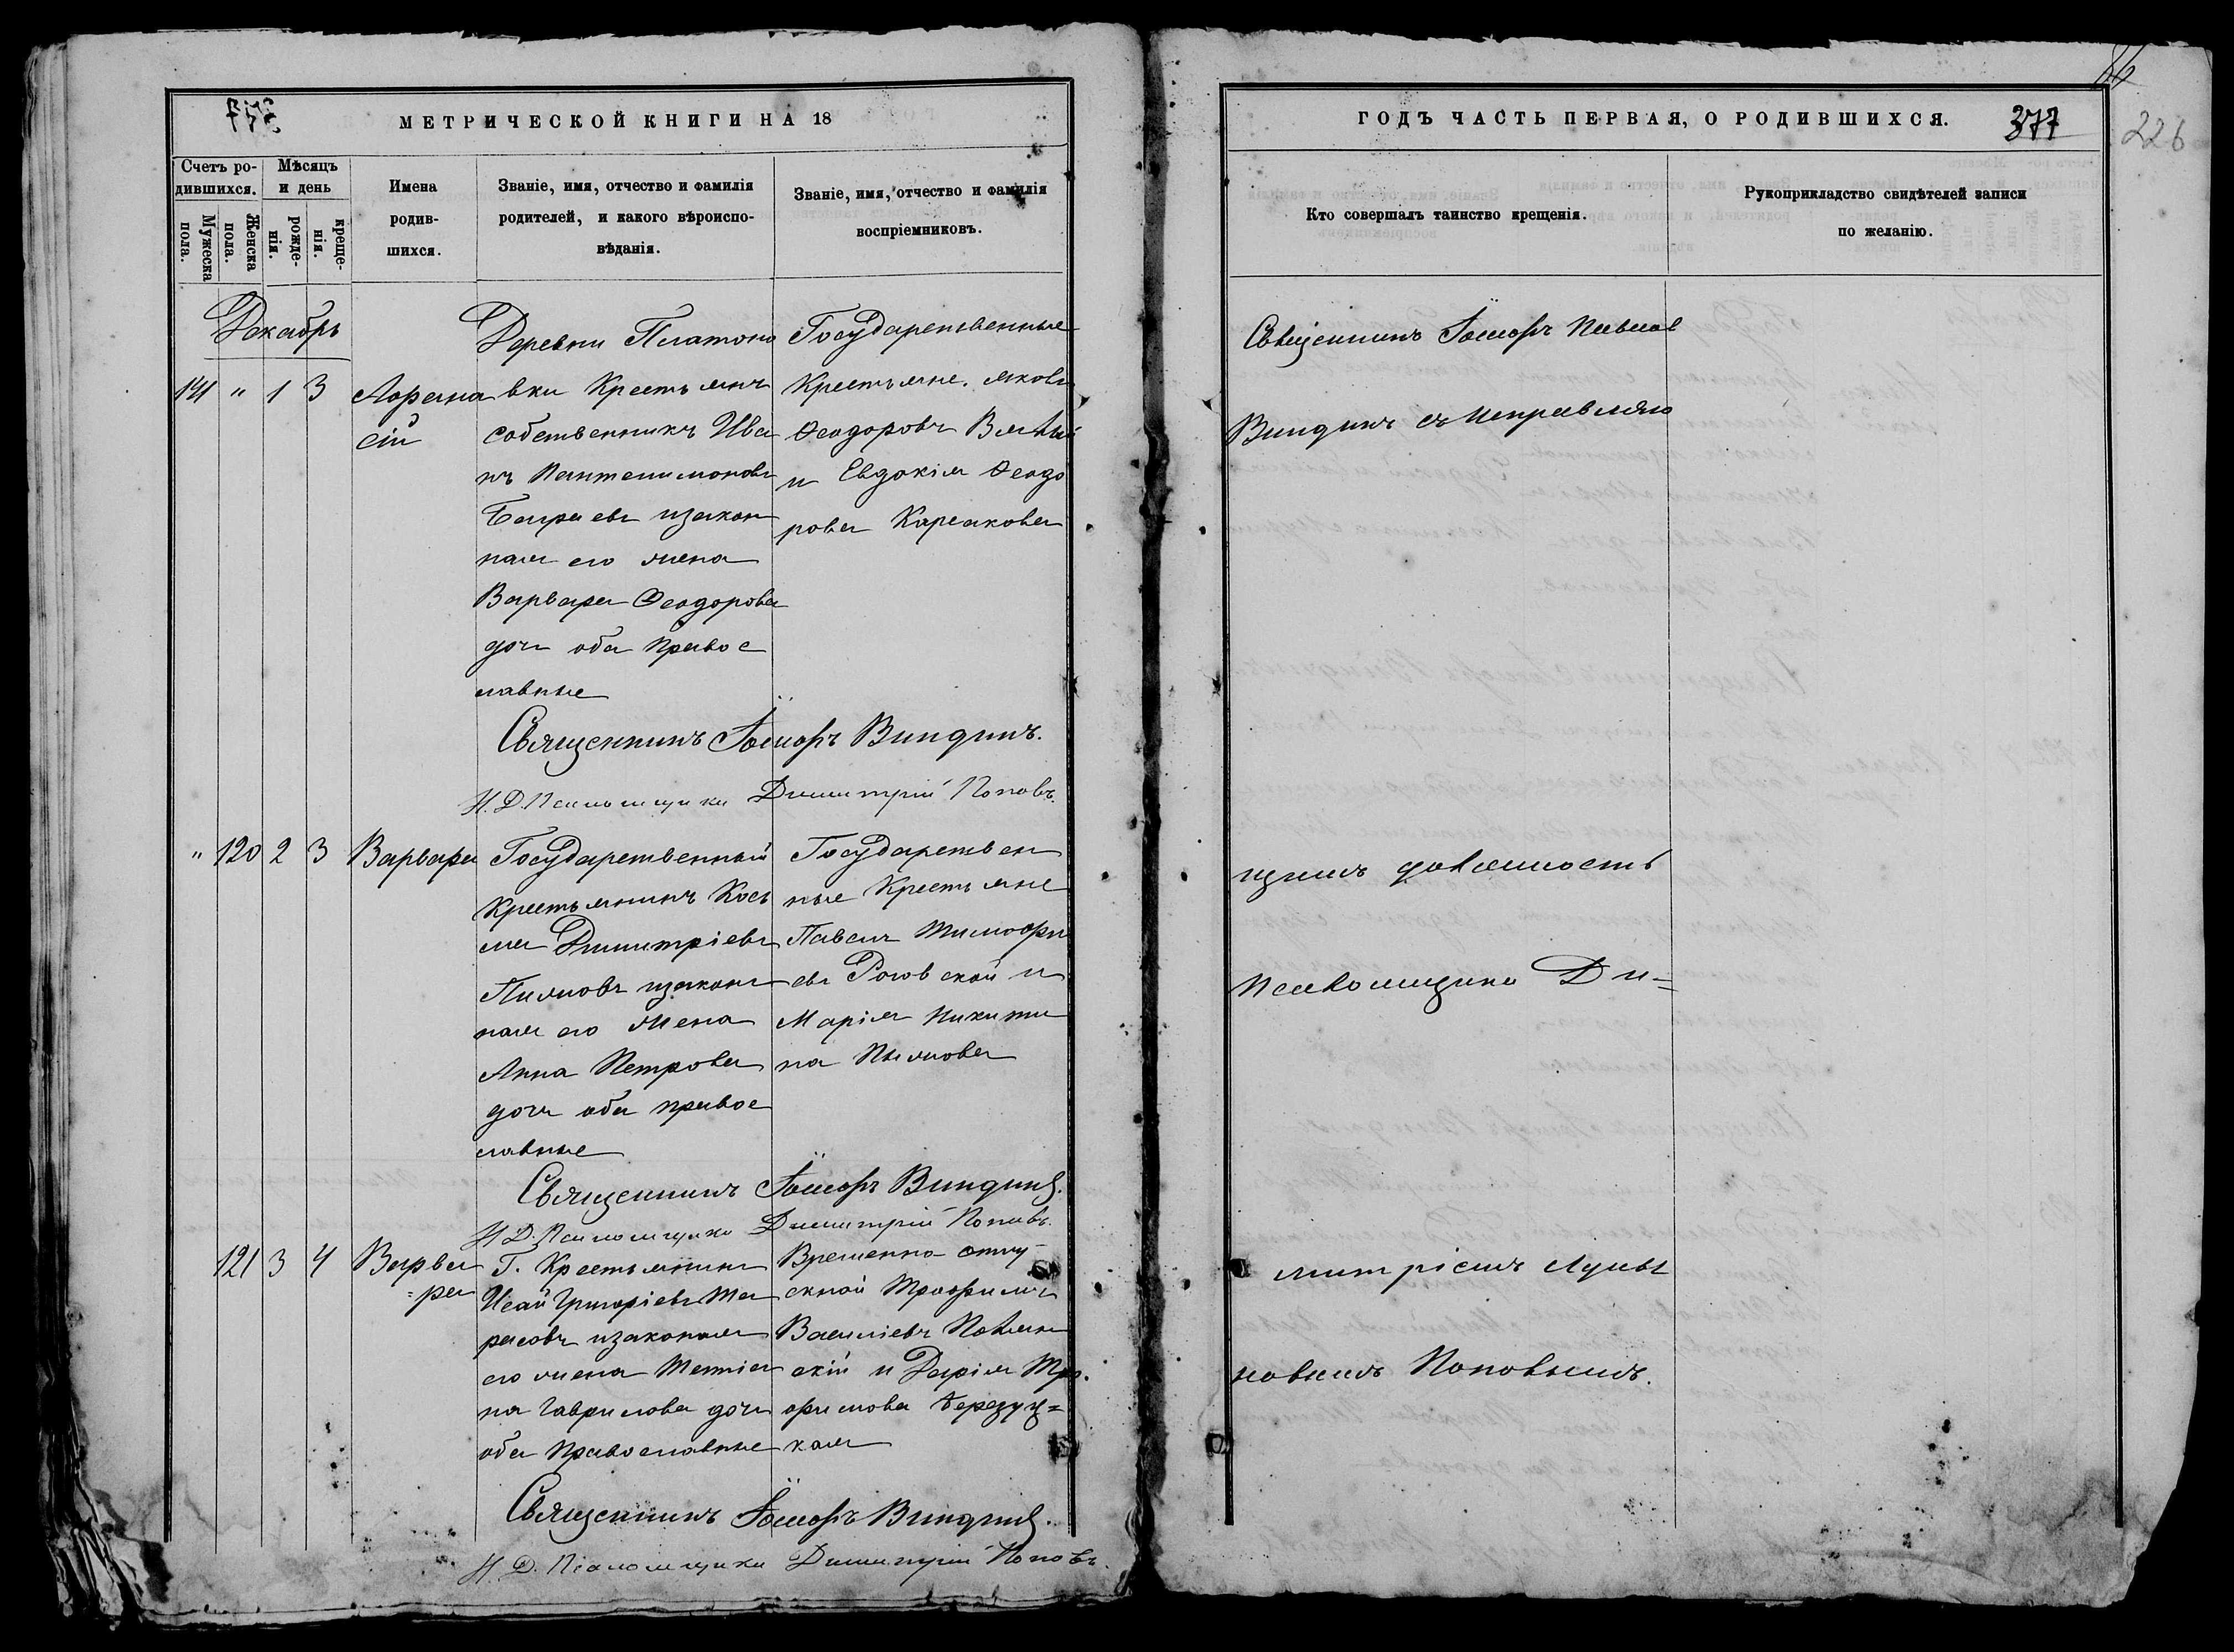 МЕТРИЧЕСКОЙ КНИГИ НА 18
Счетъ ро-
дившихся.
Мужеска
пола.
Женска
пола.
Мѣсяцъ
и день
рожде-
нія.
креще-
нія.
Имена
родив-
шихся.
Званіе, имя, отчество и фамилія
родителей, и какого вѣроиспо-
вѣданія.
Званіе, имя, отчество и фамилія
воспріемниковъ.
Декабрь
141 " 1 3
Афана
сій
Деревни Платоно
вки Крестьянъ
собственникъ Ива
нъ Пантелимоновъ
изакон
ная его жена
Варвара Ѳеодорова
доч оба Правос
лавные
Государственные
Крестьяне. Яковъ
Ѳеодоровъ
и Евдокія Ѳеодо
рова Карсакова
Священникъ Іосифъ Виндинъ.
И. Д. Псаломщика Димитрій Поповъ.
" 120 2 3
Варвара
Государственный
Крестьянинъ Кось
ма Димитріевъ
изакон
ная его жена
Анна Петрова
доч оба правос
лавные
Государствен
ные Крестьяне
Павелъ Тимофе
евъ Роговской и
Марія Никити
на
Священникъ Іосифъ Виндинъ.
И Д. Псаломщика Димитрій Поповъ.
121 3 4
Варва
=ра
Г. Крестьянинъ
Исай Григоріевъ Та
расовъ изаконная
его жена
на Гаврилова доч
оба Православные
Временно отпу
скной Трофимъ
Василіевъ
скій и Дарія Тро.
фимова Березуц=
кая
Священникъ Іосифъ Виндинъ.
И. Д. Псаломщика Димитрій Поповъ.
ГОДЪ ЧАСТЬ ПЕРВАЯ, О РОДИВШИХСЯ.
377
226
Кто совершалъ таинство крещенія.
Рукоприкладство свидѣтелей записи
по желанію.
Священникъ Іосифъ
Виндинъ съ исправляю
щимъ должность
псаломщика Ди=
митріемъ Лукы
новымъ Поповымъ.